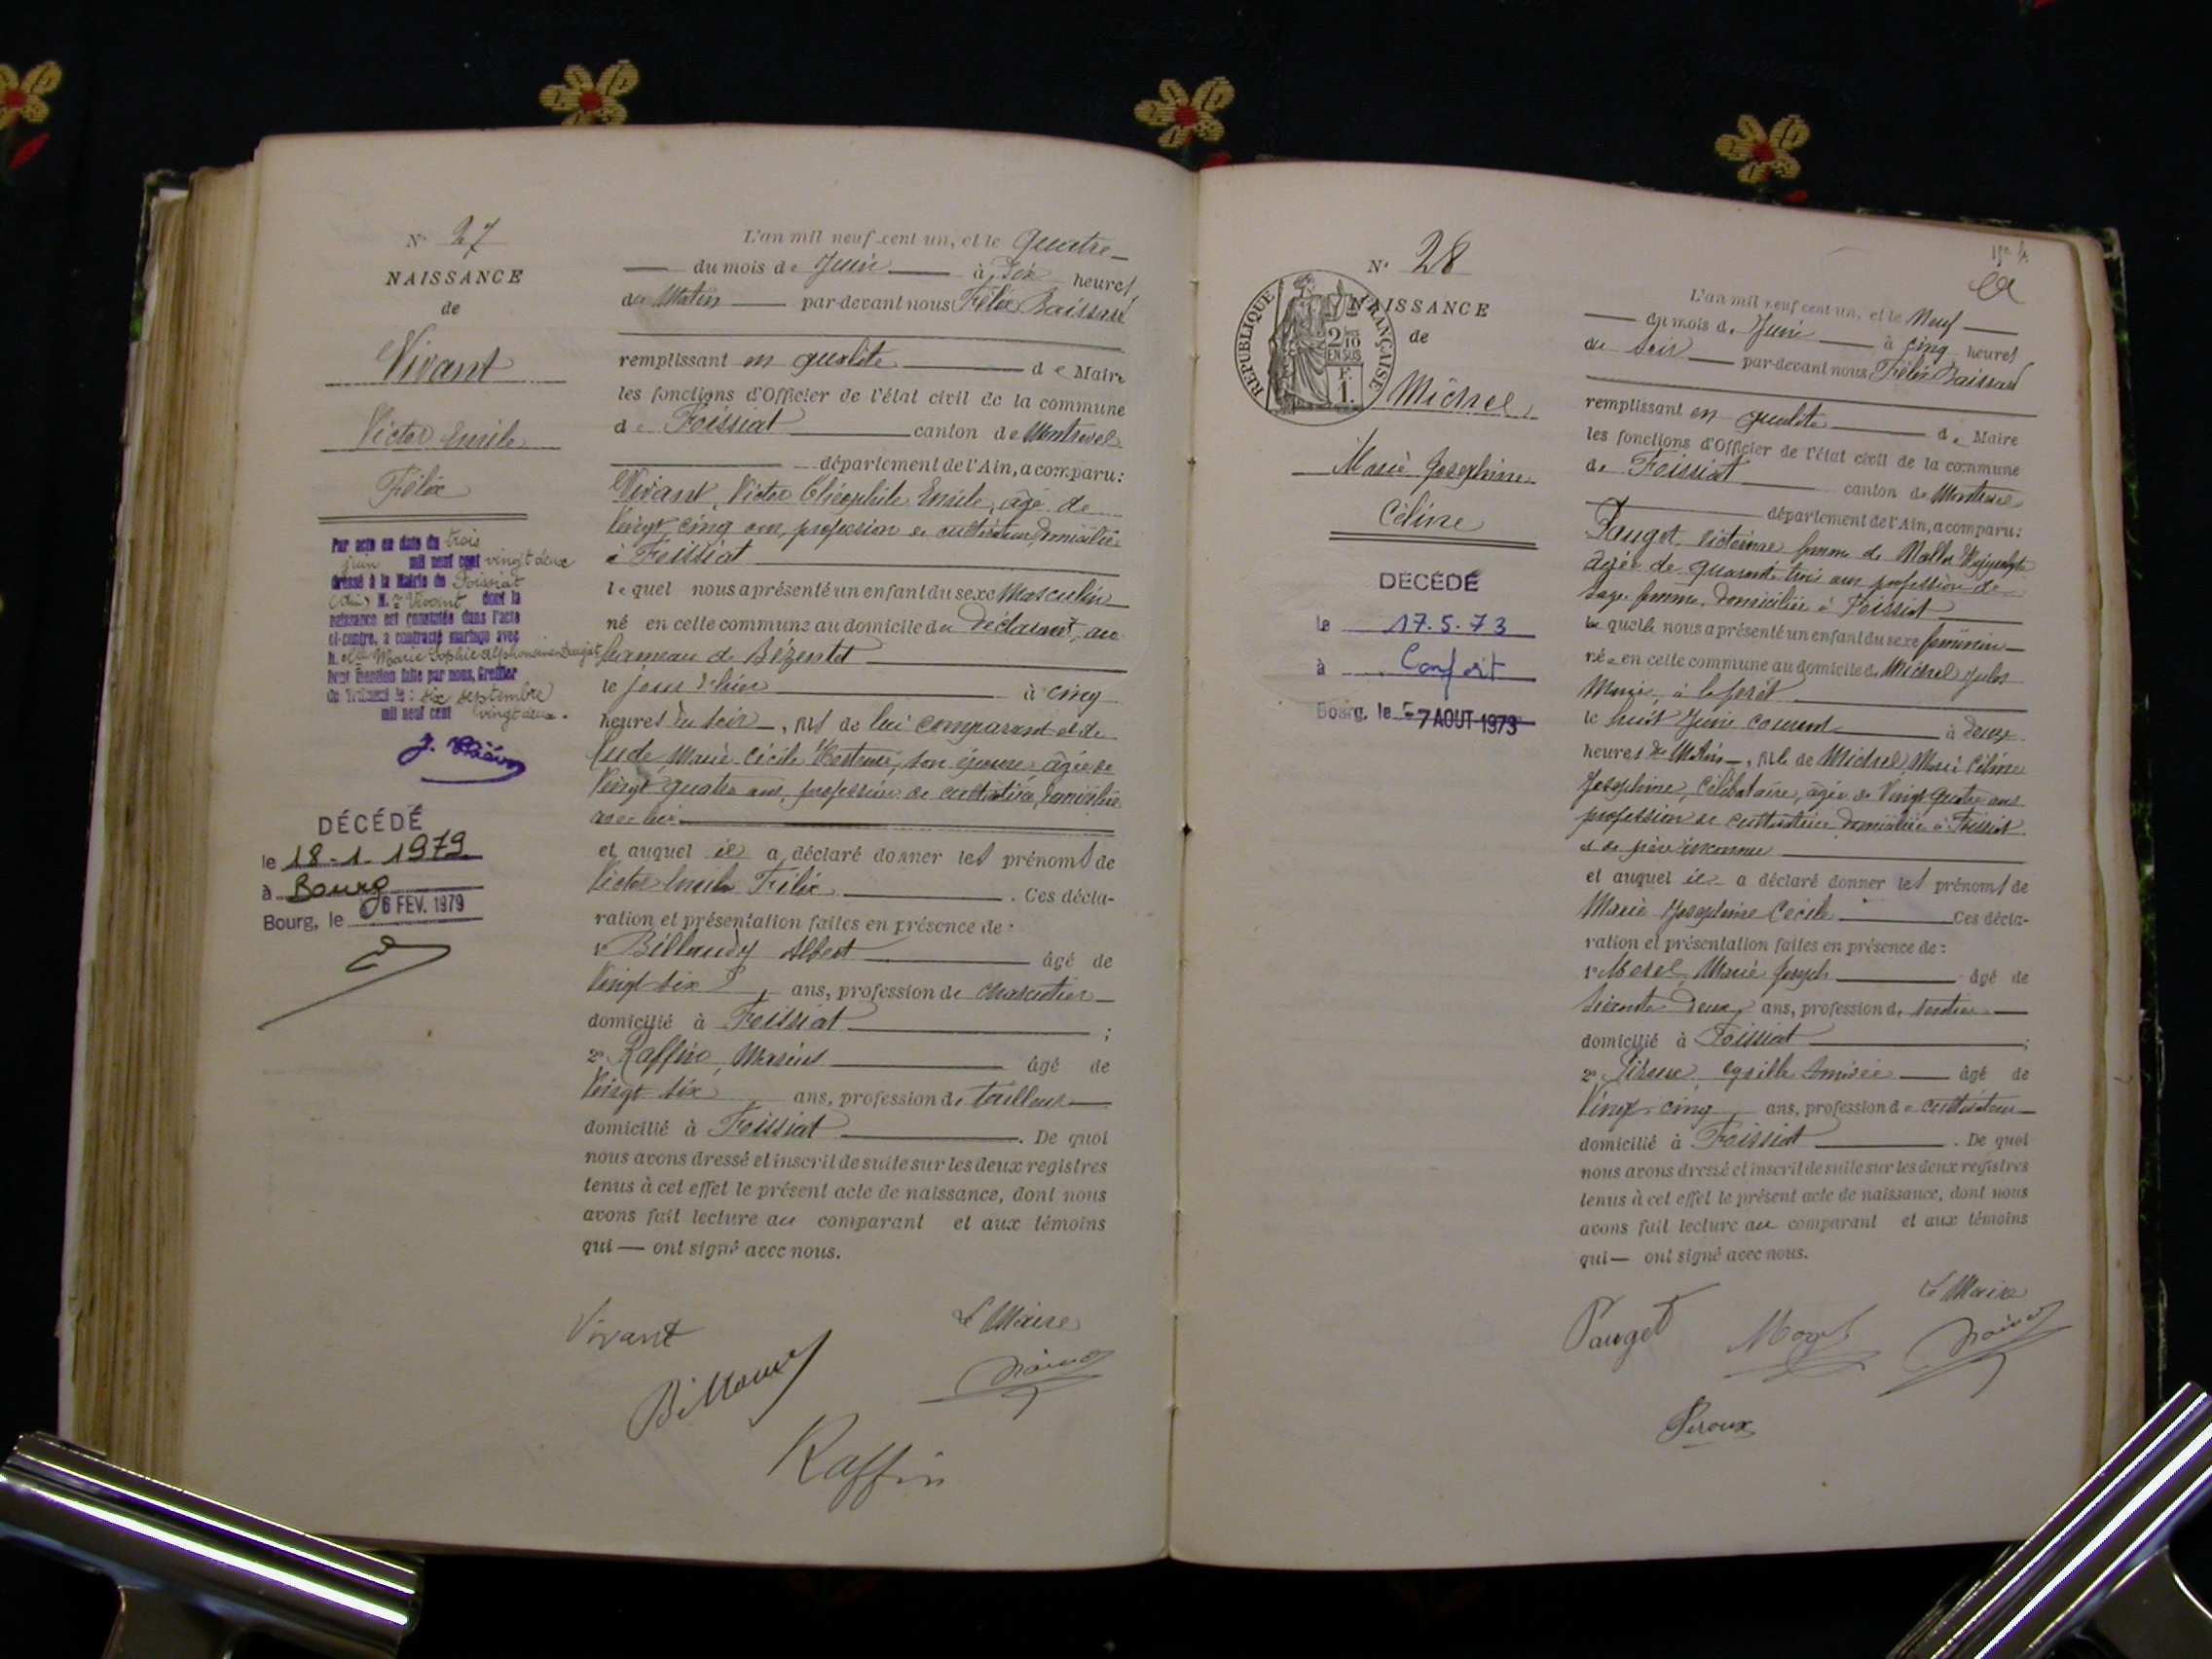 N° 27
NAISSANCE
de
Vivant
Victor Emile
Félix
Par acte en date du trois
juin mil neuf cent vingt deux
dressé à la Mairie de Foissiat
(Ain) M. Vivant dont la
naissance est constatée dans l'acte
ci-contre, a contracté mariage avec
M. elle Marie Sophie Alphonsine Pauget
Dont mention faite par nous, Greffier
du Tribunal le : six septembre
mil neuf cent vingt deux.
DÉCÉDÉ
le 18-1-1979
à Bourg
Bourg, le 6 FEV. 1979
L'an mil neuf cent un, et le Quatre
du mois de Juin à Dix heures
du Matin par-devant nous Félix Baissard
remplissant en qualité de Maire
les fonctions d'Officier de l'état civil de la commune
de Foissiat canton de Montrevel
département de l'Ain, a comparu:
Vivant, Victor Théophile Emile, âgé de
Vingt cinq ans, profession de cultivateur, domicilié
à Foissiat
lequel nous a présenté un enfant du sexe Masculin
né en cette commune au domicile du déclarant, au
hameau de Bézentet
le jour d'hier à cinq
heures du soir, fils de lui comparant et de
Marie Cécile son épouse âgée de
Vingt quatre ans, profession de cultivatrice, domiciliée
avec lui
et auquel il a déclaré donner les prénoms de
Victor Emile Félix. Ces décla-
ration et présentation faites en présence de :
1° Billoudy Albert âgé de
Vingt six ans, profession de charcutier
domicilié à Foissiat ;
2° Raffin, Marius âgé de
Vingt six ans, profession de tailleur
domicilié à Foissiat. De quoi
nous avons dressé et inscrit de suite sur les deux registres
tenus à cet effet le présent acte de naissance, dont nous
avons fait lecture au comparant et aux témoins
qui — ont signé avec nous.
Vivant
Le Maire
Raffin
N° 28
REPUBLIQUE FRANÇAISE
2/10
EN SUS
F.
1.
NAISSANCE
de
Michel
Marie Joséphine
Céline
DÉCÉDÉ
le 17.5.73
à Confort
Bourg, le 7 AOUT 1973
L'an mil neuf cent un, et le Neuf
du mois de Juin à cinq heures
du soir par-devant nous Félix Baissard
remplissant en qualité de Maire
les fonctions d'Officier de l'état civil de la commune
de Foissiat canton de Montrevel
département de l'Ain, a comparu:
Pauget Victorine femme de
âgée de quarante trois ans profession de
Sage femme, domiciliée à Foissiat
laquelle nous a présenté un enfant du sexe féminin
née en cette commune au domicile de Michel Jules
Marie, à la forêt
le huit Juin courant à deux
heures du Matin, fille de Michel, Marie Céline
Joséphine, Célibataire, âgée de Vingt quatre ans
profession de cultivatrice domiciliée à Foissiat
et de père inconnu
et auquel il a déclaré donner les prénoms de
Marie Joséphine Cécile Ces décla-
ration et présentation faites en présence de :
1° Morel, Marie Joseph âgé de
Soixante Deux ans, profession de rentier
domicilié à Foissiat ;
2° âgé de
Vingt cinq ans, profession de cultivateur
domicilié à Foissiat. De quoi
nous avons dressé et inscrit de suite sur les deux registres
tenus à cet effet le présent acte de naissance, dont nous
avons fait lecture au comparant et aux témoins
qui — ont signé avec nous.
Le Maire
Pauget Morel
Peroux